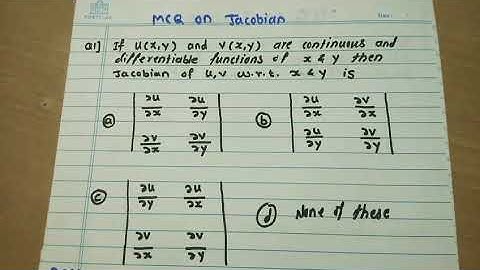 MCQ on Jacobian
Q1] If u(x,y) and v(x,y) are continuous and
differentiable functions of x & y then
Jacobian of u,v w.r.t. x & y is
(a) | ∂u/∂x ∂u/∂y |
| ∂v/∂x ∂v/∂y |
(b) | ∂u/∂x ∂v/∂x |
| ∂u/∂y ∂v/∂y |
(c) | ∂u/∂y ∂u/∂x |
| ∂v/∂x ∂v/∂y |
(d) None of these